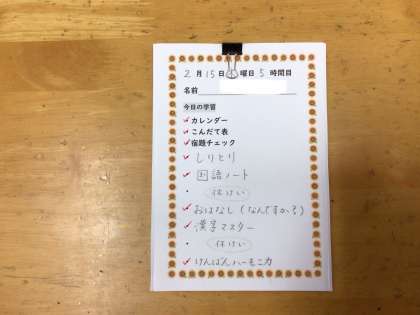 2月15日(水)曜日5時間目
名前
今日の学習
✓カレンダー
✓こんだて表
✓宿題チェック
✓しりとり
✓国語ノート
・(休けい)
✓おはなし(なんですか?)
✓漢字マスター
・(休けい)
✓けんばんハーモニカ